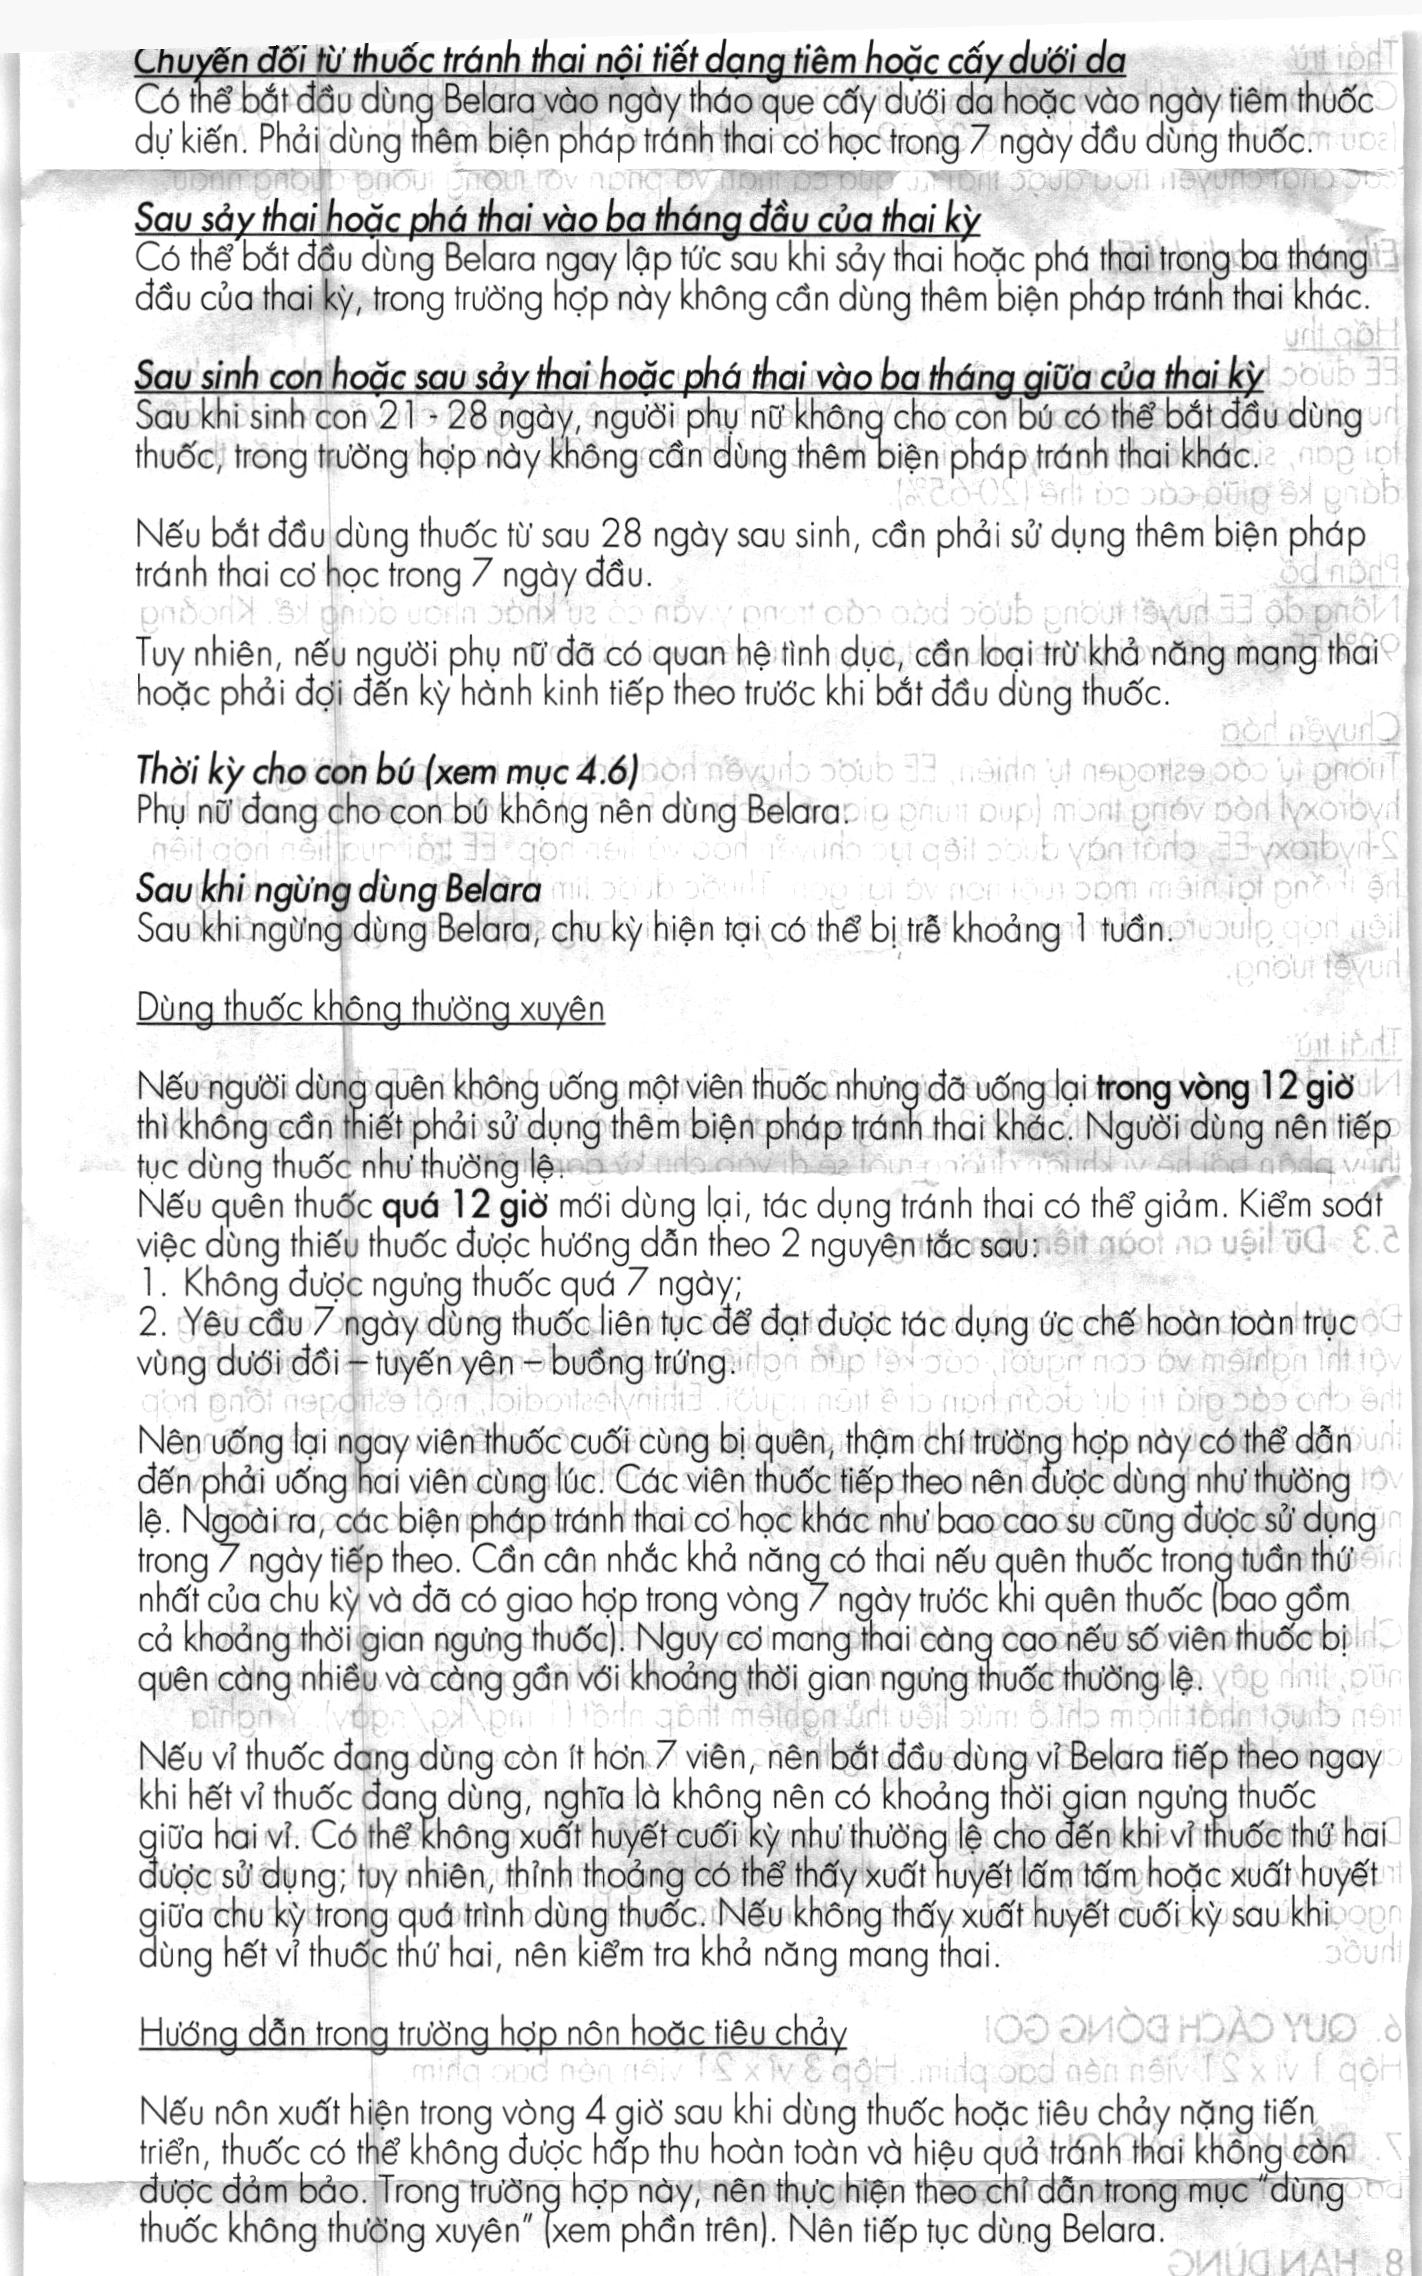 Chuyển đổi từ thuốc tránh thai nội tiết dạng tiêm hoặc cấy dưới da
Có thể bắt đầu dùng Belara vào ngày tháo que cấy dưới da hoặc vào ngày tiêm thuốc
dự kiến. Phải dùng thêm biện pháp tránh thai cơ học trong 7 ngày đầu dùng thuốc.
Sau sảy thai hoặc phá thai vào ba tháng đầu của thai kỳ
Có thể bắt đầu dùng Belara ngay lập tức sau khi sảy thai hoặc phá thai trong ba tháng
đầu của thai kỳ, trong trường hợp này không cần dùng thêm biện pháp tránh thai khác.
Sau sinh con hoặc sau sảy thai hoặc phá thai vào ba tháng giữa của thai kỳ
Sau khi sinh con 21 - 28 ngày, người phụ nữ không cho con bú có thể bắt đầu dùng
thuốc, trong trường hợp này không cần dùng thêm biện pháp tránh thai khác.
Nếu bắt đầu dùng thuốc từ sau 28 ngày sau sinh, cần phải sử dụng thêm biện pháp
tránh thai cơ học trong 7 ngày đầu.
Tuy nhiên, nếu người phụ nữ đã có quan hệ tình dục, cần loại trừ khả năng mang thai
hoặc phải đợi đến kỳ hành kinh tiếp theo trước khi bắt đầu dùng thuốc.
Thời kỳ cho con bú (xem mục 4.6)
Phụ nữ đang cho con bú không nên dùng Belara.
Sau khi ngừng dùng Belara
Sau khi ngừng dùng Belara, chu kỳ hiện tại có thể bị trễ khoảng 1 tuần.
Dùng thuốc không thường xuyên
Nếu người dùng quên không uống một viên thuốc nhưng đã uống lại trong vòng 12 giờ
thì không cần thiết phải sử dụng thêm biện pháp tránh thai khác. Người dùng nên tiếp
tục dùng thuốc như thường lệ.
Nếu quên thuốc quá 12 giờ mới dùng lại, tác dụng tránh thai có thể giảm. Kiểm soát
việc dùng thiếu thuốc được hướng dẫn theo 2 nguyên tắc sau:
1. Không được ngưng thuốc quá 7 ngày;
2. Yêu cầu 7 ngày dùng thuốc liên tục để đạt được tác dụng ức chế hoàn toàn trục
vùng dưới đồi – tuyến yên – buồng trứng.
Nên uống lại ngay viên thuốc cuối cùng bị quên, thậm chí trường hợp này có thể dẫn
đến phải uống hai viên cùng lúc. Các viên thuốc tiếp theo nên được dùng như thường
lệ. Ngoài ra, các biện pháp tránh thai cơ học khác như bao cao su cũng được sử dụng
trong 7 ngày tiếp theo. Cần cân nhắc khả năng có thai nếu quên thuốc trong tuần thứ
nhất của chu kỳ và đã có giao hợp trong vòng 7 ngày trước khi quên thuốc (bao gồm
cả khoảng thời gian ngưng thuốc). Nguy cơ mang thai càng cao nếu số viên thuốc bị
quên càng nhiều và càng gần với khoảng thời gian ngưng thuốc thường lệ.
Nếu vỉ thuốc đang dùng còn ít hơn 7 viên, nên bắt đầu dùng vỉ Belara tiếp theo ngay
khi hết vỉ thuốc đang dùng, nghĩa là không nên có khoảng thời gian ngưng thuốc
giữa hai vỉ. Có thể không xuất huyết cuối kỳ như thường lệ cho đến khi vỉ thuốc thứ hai
được sử dụng; tuy nhiên, thỉnh thoảng có thể thấy xuất huyết lấm tấm hoặc xuất huyết
giữa chu kỳ trong quá trình dùng thuốc. Nếu không thấy xuất huyết cuối kỳ sau khi
dùng hết vỉ thuốc thứ hai, nên kiểm tra khả năng mang thai.
Hướng dẫn trong trường hợp nôn hoặc tiêu chảy
Nếu nôn xuất hiện trong vòng 4 giờ sau khi dùng thuốc hoặc tiêu chảy nặng tiến
triển, thuốc có thể không được hấp thu hoàn toàn và hiệu quả tránh thai không còn
được đảm bảo. Trong trường hợp này, nên thực hiện theo chỉ dẫn trong mục "dùng
thuốc không thường xuyên" (xem phần trên). Nên tiếp tục dùng Belara.